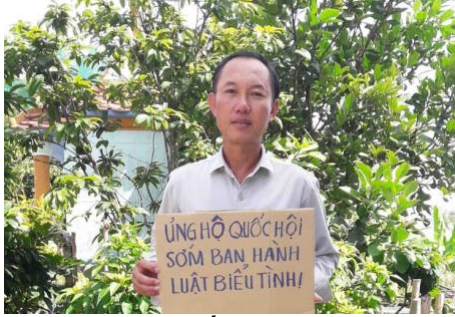 ỦNG HỘ QUỐC HỘI
SỚM BAN HÀNH
LUẬT BIỂU TÌNH!